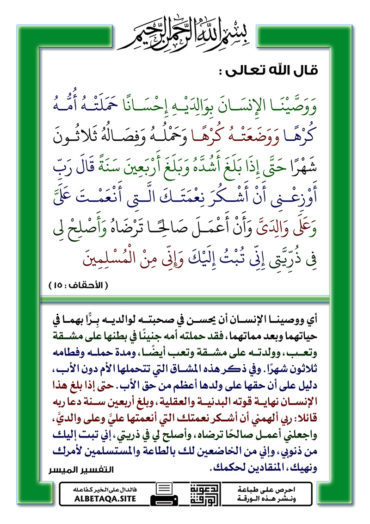 بسم الله الرحمن الرحيم
قال الله تعالى :
وَوَصَّيْنَا الإِنسَانَ بِوَالِدَيْهِ إِحْسَانًا حَمَلَتْهُ أُمُّهُ
كُرْهًا وَوَضَعَتْهُ كُرْهًا وَحَمْلُهُ وَفِصَالُهُ ثَلاثُونَ
شَهْرًا حَتَّى إِذَا بَلَغَ أَشُدَّهُ وَبَلَغَ أَرْبَعِينَ سَنَةً قَالَ رَبِّ
أَوْزِعْنِي أَنْ أَشْكُرَ نِعْمَتَكَ الَّتِي أَنْعَمْتَ عَلَيَّ
وَعَلَى وَالِدَيَّ وَأَنْ أَعْمَلَ صَالِحًا تَرْضَاهُ وَأَصْلِحْ لِي
فِي ذُرِّيَّتِي إِنِّي تُبْتُ إِلَيْكَ وَإِنِّي مِنَ الْمُسْلِمِينَ
( الأحقاف : ١٥ )
أي ووصينا الإنسان أن يحسن في صحبته لوالديه بِرًّا بهما في
حياتهما وبعد مماتهما، فقد حملته أمه جنينًا في بطنها على مشقة
وتعب، وولدته على مشقة وتعب أيضًا، ومدة حمله وفطامه
ثلاثون شهرًا. وفي ذكر هذه المشاق التي تتحملها الأم دون الأب،
دليل على أن حقها على ولدها أعظم من حق الأب. حتى إذا بلغ هذا
الإنسان نهاية قوته البدنية والعقلية، وبلغ أربعين سنة دعا ربه
قائلا: ربي ألهمني أن أشكر نعمتك التي أنعمتها عليَّ وعلى والديَّ،
واجعلني أعمل صالحًا ترضاه، وأصلح لي في ذريتي، إني تبت إليك
من ذنوبي، وإني من الخاضعين لك بالطاعة والمستسلمين لأمرك
ونهيك، المنقادين لحكمك. التفسير الميسر
احرص على طباعة
ونشر هذه الورقة
الدعوية
الورقة
فالدال على الخير كفاعله
ALBETAQA.SITE